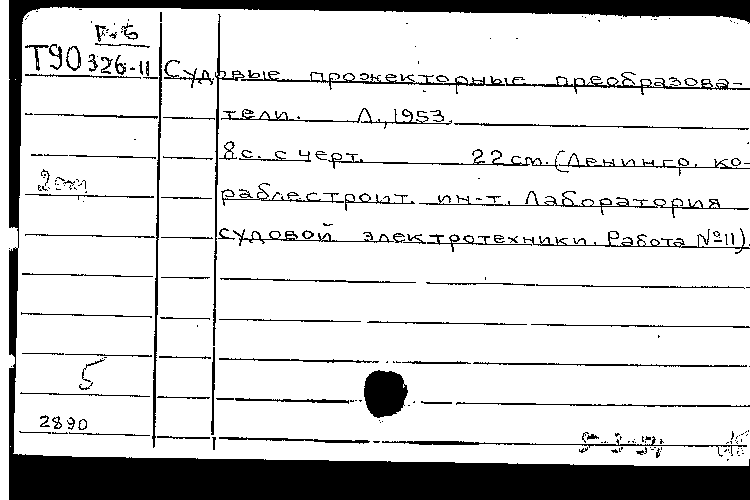 Т90 326-11
Судовые прожекторные преобразова-
тели. Л., 1953.
8 с. с черт. 22 см. (Ленингр. ко-
раблестроит. ин-т. Лаборатория
судовой электротехники. Работа №11).
5
2890